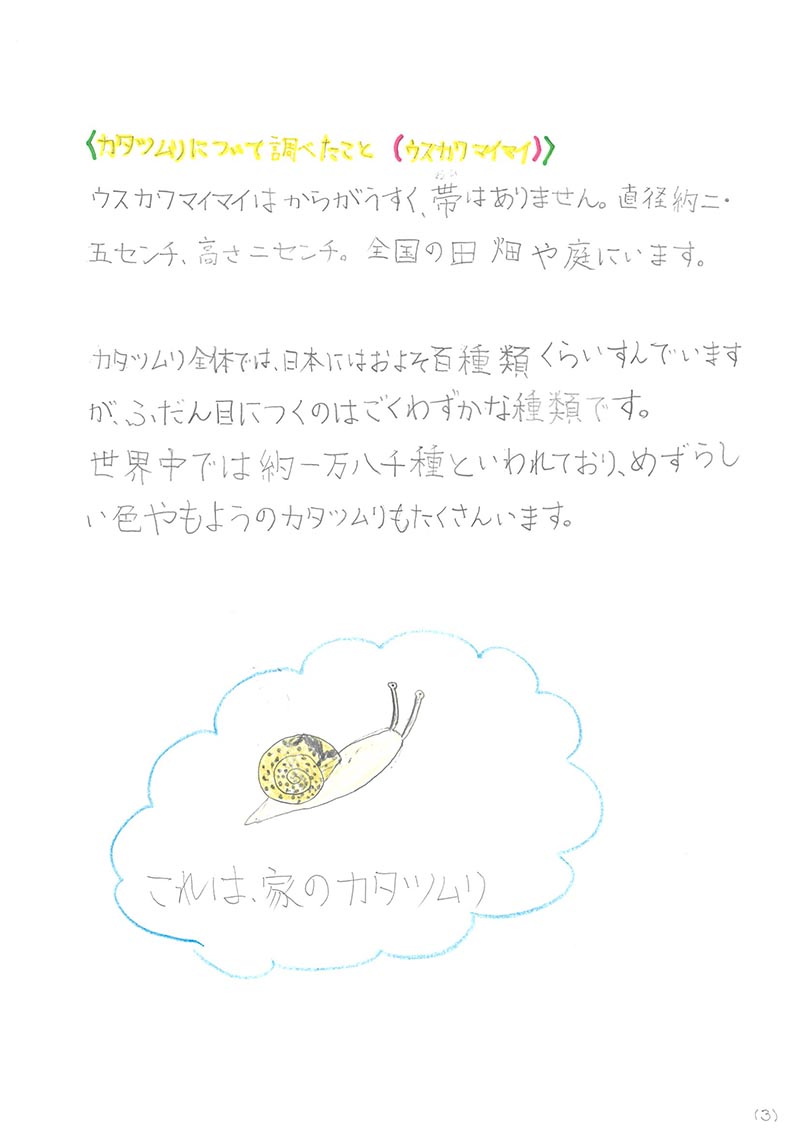 〈カタツムリについて調べたこと (ウスカワマイマイ)〉
おび
ウスカワマイマイはからがうすく、帯はありません。直径約二・
五センチ、高さ二センチ。全国の田畑や庭にいます。
カタツムリ全体では、日本にはおよそ百種類くらいすんでいます
が、ふだん目につくのはごくわずかな種類です。
世界中では約一万八千種といわれており、めずらし
い色やもようのカタツムリもたくさんいます。
これは、家のカタツムリ
(3)